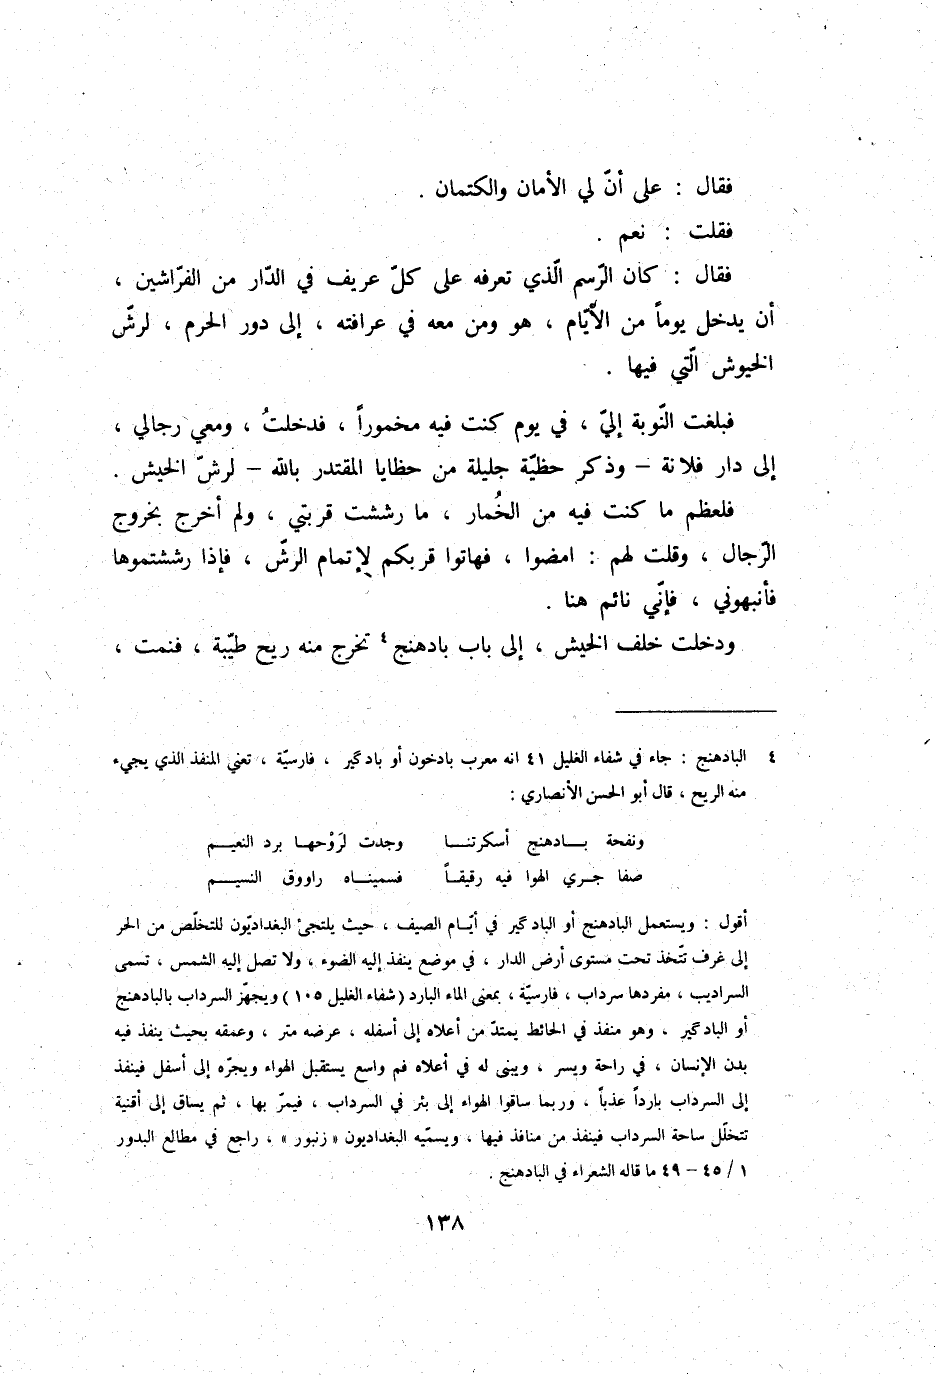 فقال : على أنّ لي الأمان والكتمان .
فقلت : نعم .
فقال : كان الرّسم الّذي تعرفه على كلّ عريف في الدّار من الفرّاشين ،
أن يدخل يوماً من الأيّام ، هو ومن معه في عرافته ، إلى دور الحرم ، لرشّ
الخيوش الّتي فيها .
فبلغت النّوبة إليّ ، في يوم كنت فيه مخموراً ، فدخلتُ ، ومعي رجالي ،
إلى دار فلانة – وذكر حظيّة جليلة من حظايا المقتدر بالله – لرشّ الخيش .
فلعظم ما كنت فيه من الخُمار ، ما رششت قربتي ، ولم أخرج بخروج
الرّجال ، وقلت لهم : امضوا ، فهاتوا قربكم لإتمام الرشّ ، فإذا رششتموها
فأنبهوني ، فإنّي نائم هنا .
ودخلت خلف الخيش ، إلى باب بادهنج ٤ تخرج منه ريح طيّبة ، فنمت ،
٤ البادهنج : جاء في شفاء الغليل ٤١ انه معرب بادخون أو بادگير ، فارسيّة ، تعني المنفذ الذي يجيء
منه الريح ، قال أبو الحسن الأنصاري :
ونفحة بـــادهنج أسكرتنـــا وجدت لرَوْحهـا برد النعيــم
صفا جـري الهوا فيه رقيقـاً فسمينـــاه راووق النسيـــم
أقول : ويستعمل البادهنج أو البادگير في أيّـام الصيف ، حيث يلتجئ البغداديّون للتخلّص من الحر
إلى غرف تتّخذ تحت مستوى أرض الدار ، في موضع ينفذ إليه الضوء ، ولا تصل إليه الشمس ، تسمى
السراديب ، مفردها سرداب ، فارسيّة ، بمعنى الماء البارد ( شفاء الغليل ١٠٥ ) ويجهّز السرداب بالبادهنج
أو البادگير ، وهو منفذ في الحائط يمتدّ من أعلاه إلى أسفله ، عرضه متر ، وعمقه بحيث ينفذ فيه
بدن الإنسان ، في راحة ويسر ، ويبنى له في أعلاه فم واسع يستقبل الهواء ويجرّه إلى أسفل فينفذ
إلى السرداب بارداً عذباً ، وربما ساقوا الهواء إلى بئر في السرداب ، فيمرّ بها ، ثم يساق إلى أقنية
تتخلّل ساحة السرداب فينفذ من منافذ فيها ، ويسمّيه البغداديون « زنبور » ، راجع في مطالع البدور
١ / ٤٥ – ٤٩ ما قاله الشعراء في البادهنج .
١٣٨